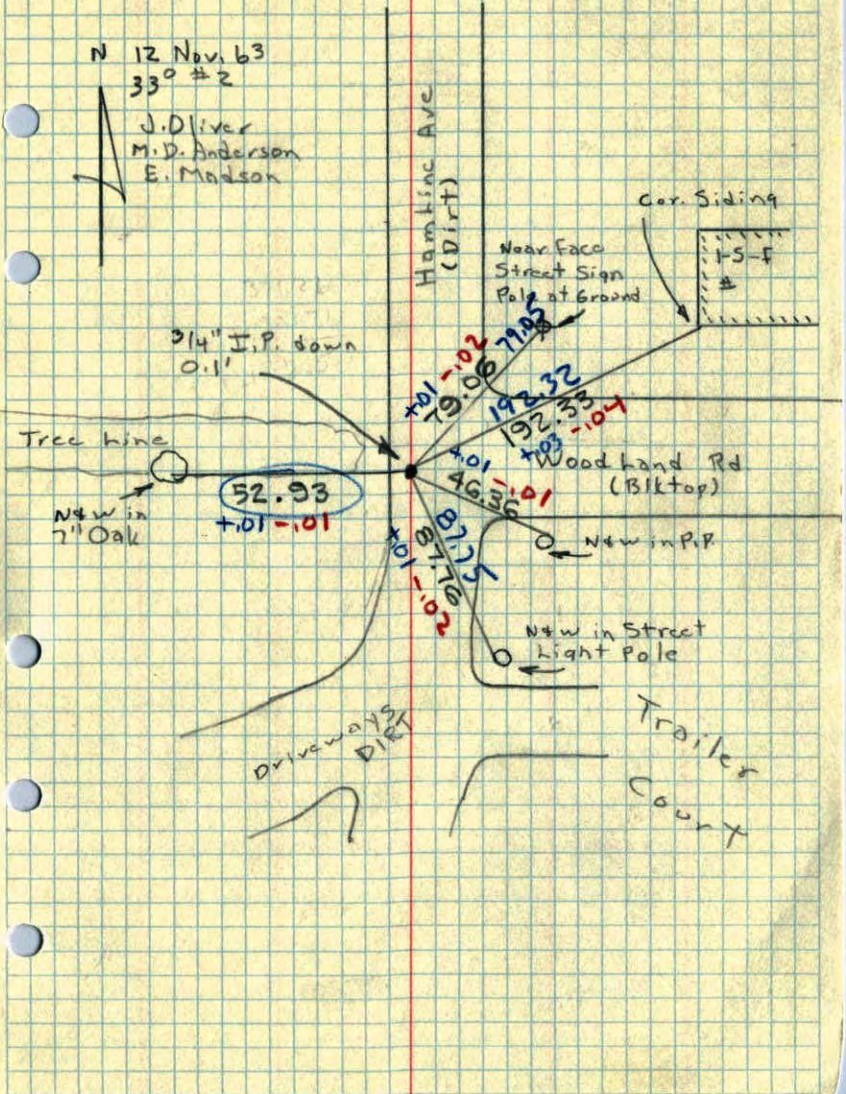 N 12 Nov. 63
33° #2
J. Oliver
M.D. Anderson
E. Madson
Hamline Ave
(Dirt)
Cor. Siding
1-S-F
#
Near Face
Street Sign
Pole at Ground
3/4" I.P. down
0.1'
+.01 -.02
79.06 79.05
192.32
192.33
+.03 -.04
Tree Line
N&W in
7" Oak
52.93
+.01 -.01
+.01 -.01
46.36
Woodland Rd
(Blktop)
N&W in P.P.
87.75
87.76
+.01 -.02
N&W in Street
Light Pole
Driveways
DIRT
Trailer
Court